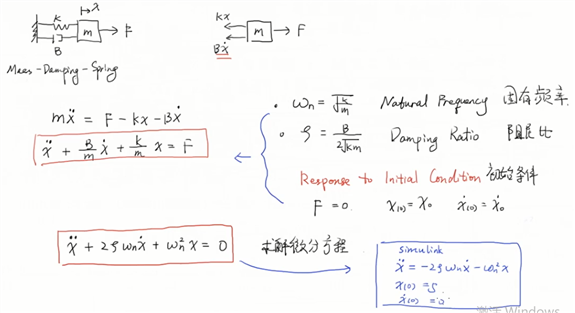 x
k
B
m
F
kx
Bẋ
m
F
Mass-Damping-Spring
mẍ = F - kx - Bẋ
ẍ + B/m ẋ + k/m x = F
ωn = √(k/m) Natural Frequency 固有频率
ζ = B/(2√(km)) Damping Ratio 阻尼比
Response to Initial Condition 初始条件
F = 0 x(0) = x0 ẋ(0) = ẋ0
ẍ + 2ζωnẋ + ωn²x = 0
求解微分方程
simulink
ẍ = -2ζωnẋ - ωn²x
x(0) = 5
ẋ(0) = 0
Windows